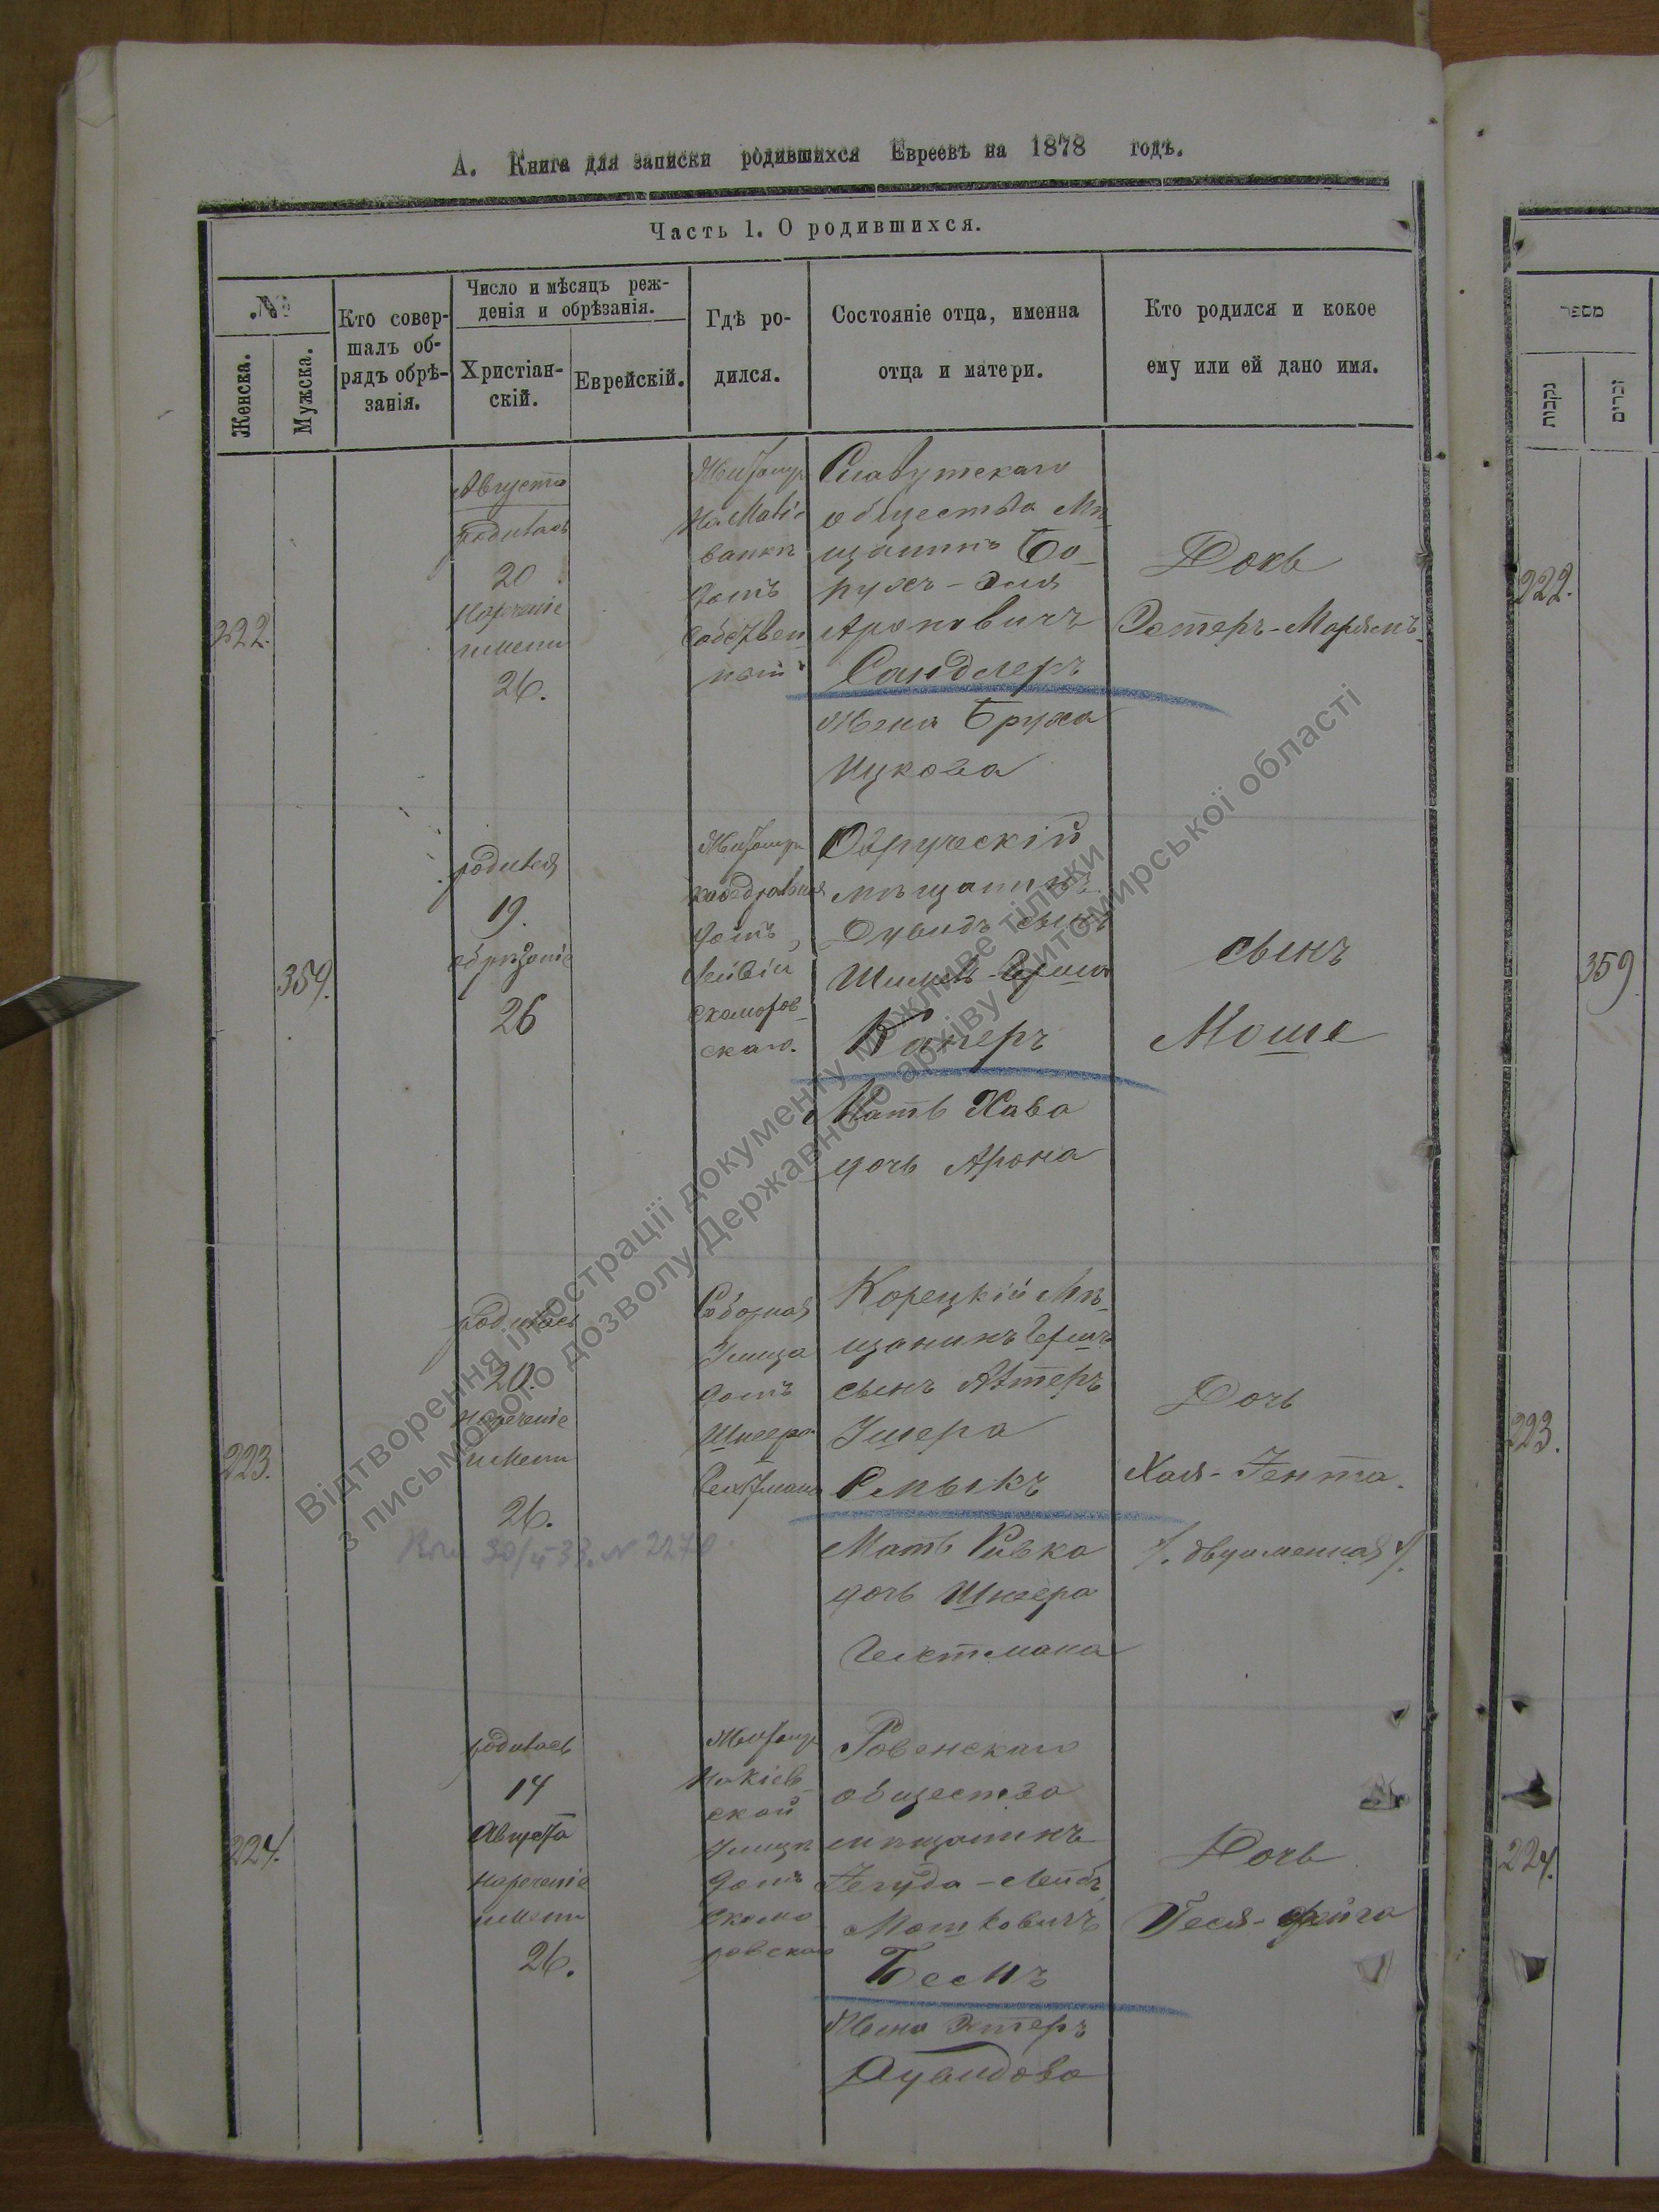 А. Книга для записки родившихся Евреевъ на 1878 годъ.
Часть 1. О родившихся.
№
Женска.
Мужска.
Кто совер-
шалъ об-
рядъ обрѣ-
занія.
Число и мѣсяцъ реж-
денія и обрѣзанія.
Христіан-
скій.
Еврейскій.
Гдѣ ро-
дился.
Состояніе отца, именна
отца и матери.
Кто родился и кокое
ему или ей дано имя.
222.
Августа
родилась
20
Нареченіе
имени
26.
Житомир
домъ
Собствен
ный
Славутскаго
общества Мѣ
щанинъ Бо-
рухъ-Эля
Ароновичъ
Сандлеръ
Жена Бруха
Ицкова
Дочь
Эстеръ-Марьямъ
359.
родился
19.
обрѣзаніе
26
Житомир
домъ
Лейбы
Скоморов-
скаго.
Овручскій
мѣщанинъ
Дувидъ сынъ
Мать Хава
дочь Арона
сынъ
Моше
223.
родилась
20.
Нареченіе
имени
26.
Соборная
Улица
домъ
Шнеера
Гехтмана
Корецкій Мѣ-
щанинъ Гершъ
сынъ
Смыкъ
Мать Ривка
дочь Шнеера
Гехтмана
Дочь
Хая-Гента.
/. двуименная /.
224.
родилась
14
Августа
нареченіе
имени
26.
Житомир
на Кіев
ской
Улицѣ
домъ
Скомо
ровскаго
Ровенскаго
общества
мѣщанинъ
Іегуда-Лейбъ
Мотковичъ
Бемъ
Жена Эстеръ
Дувидова
Дочь
Песя-Фейга
מספר
נקבות
זכרים
222.
359
223.
224.
Відтворення ілюстрації документу можливе тільки
з письмового дозволу Державного архіву Житомирської області